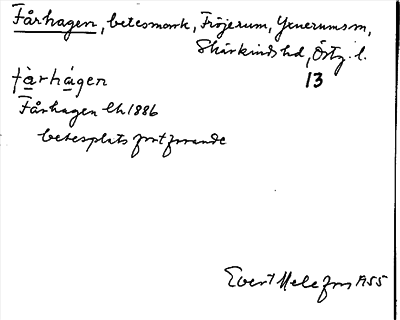 Fårhagen, betesmark, Fröjerum, Yxnerums sn,
Skärkinds hd, Östg. l.
fàrhágen 13
Fårhagen Ch 1886
betesplats fortfarande
Evert Melefors A55